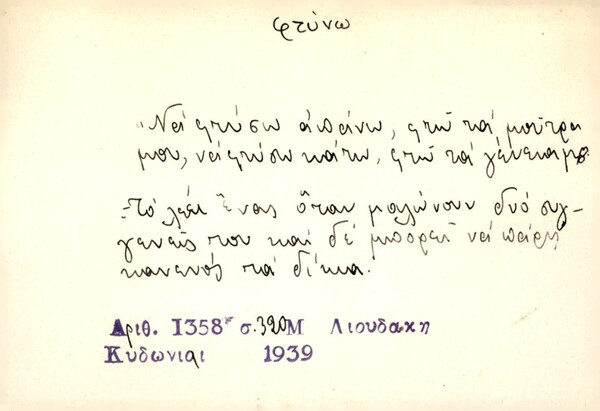 φτύνω
"Νά φτύσω ἀπάνω, φτῶ τά μοῦτρα
μου, νά φτύσω κάτω, φτῶ τά γένεια μ".
Τό λέει ἕνας ὅταν μαλώνουν δυό συγ-
γενεῖς του καί δέ μπορεῖ νά πάρῃ
κανενός τά δίκια.
Αριθ. 1358 σ. 320 Μ Λιουδακη
Κυδωνιαι 1939